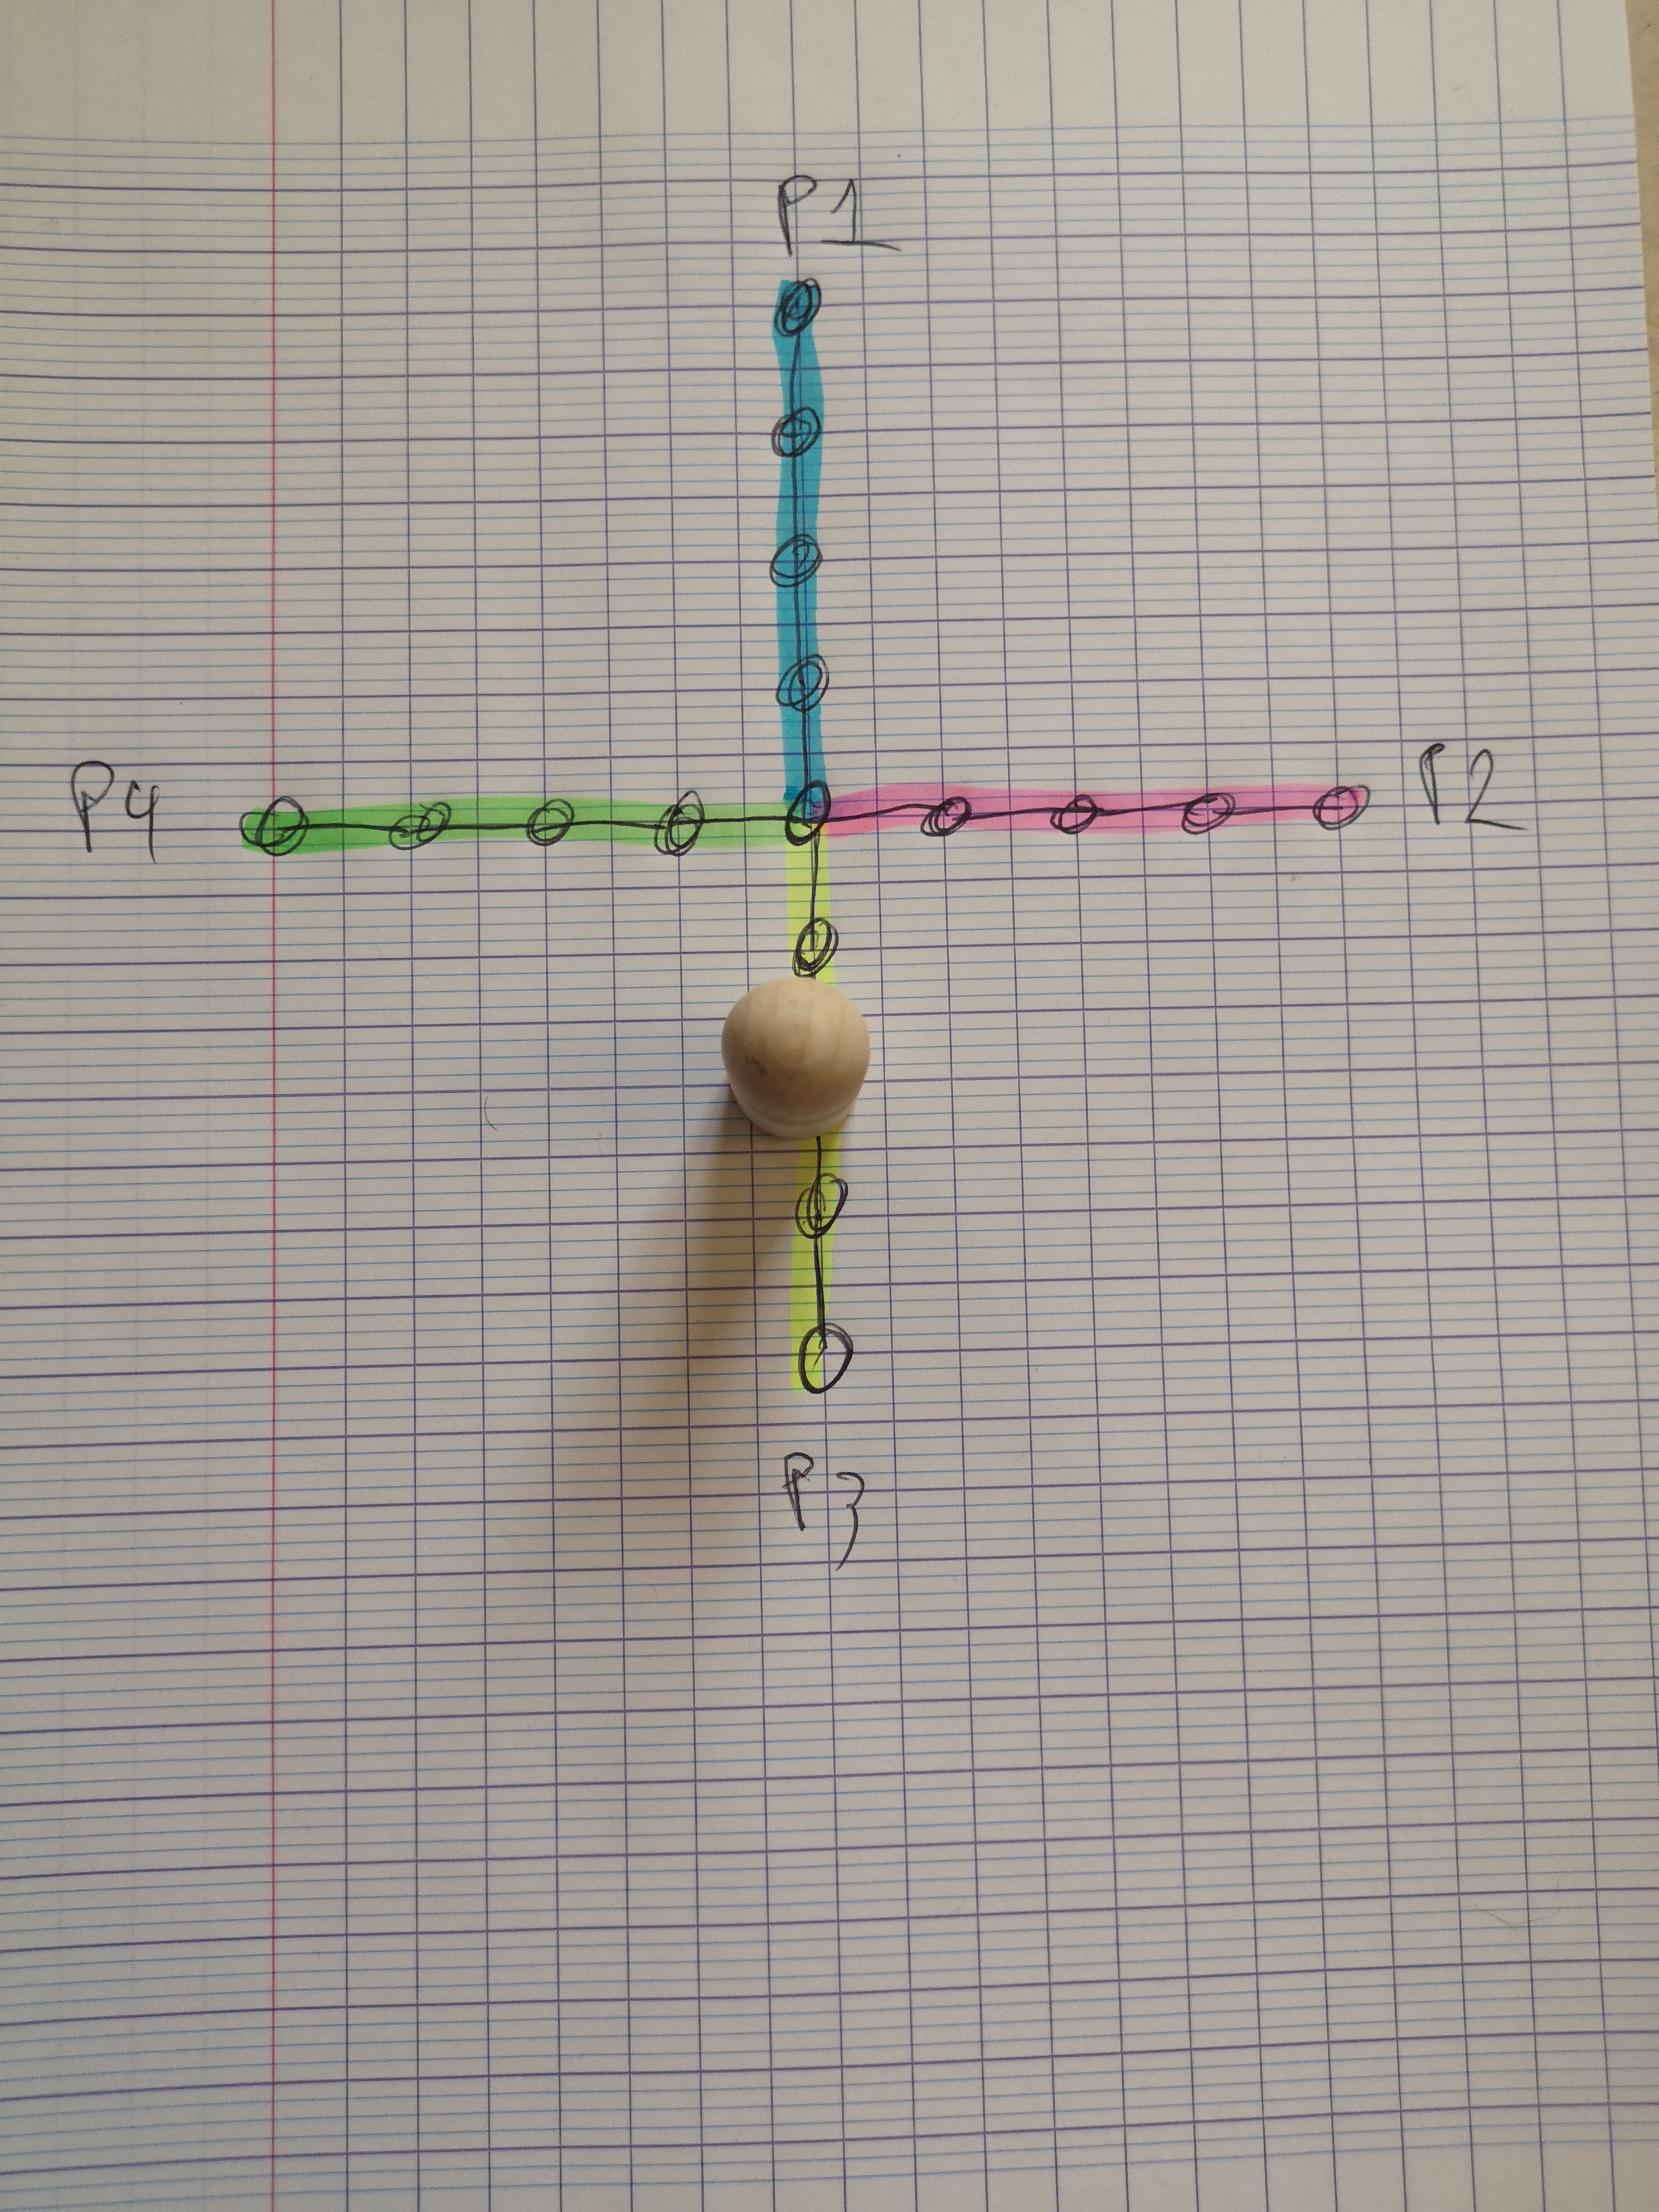 P1
P4 P2
P3